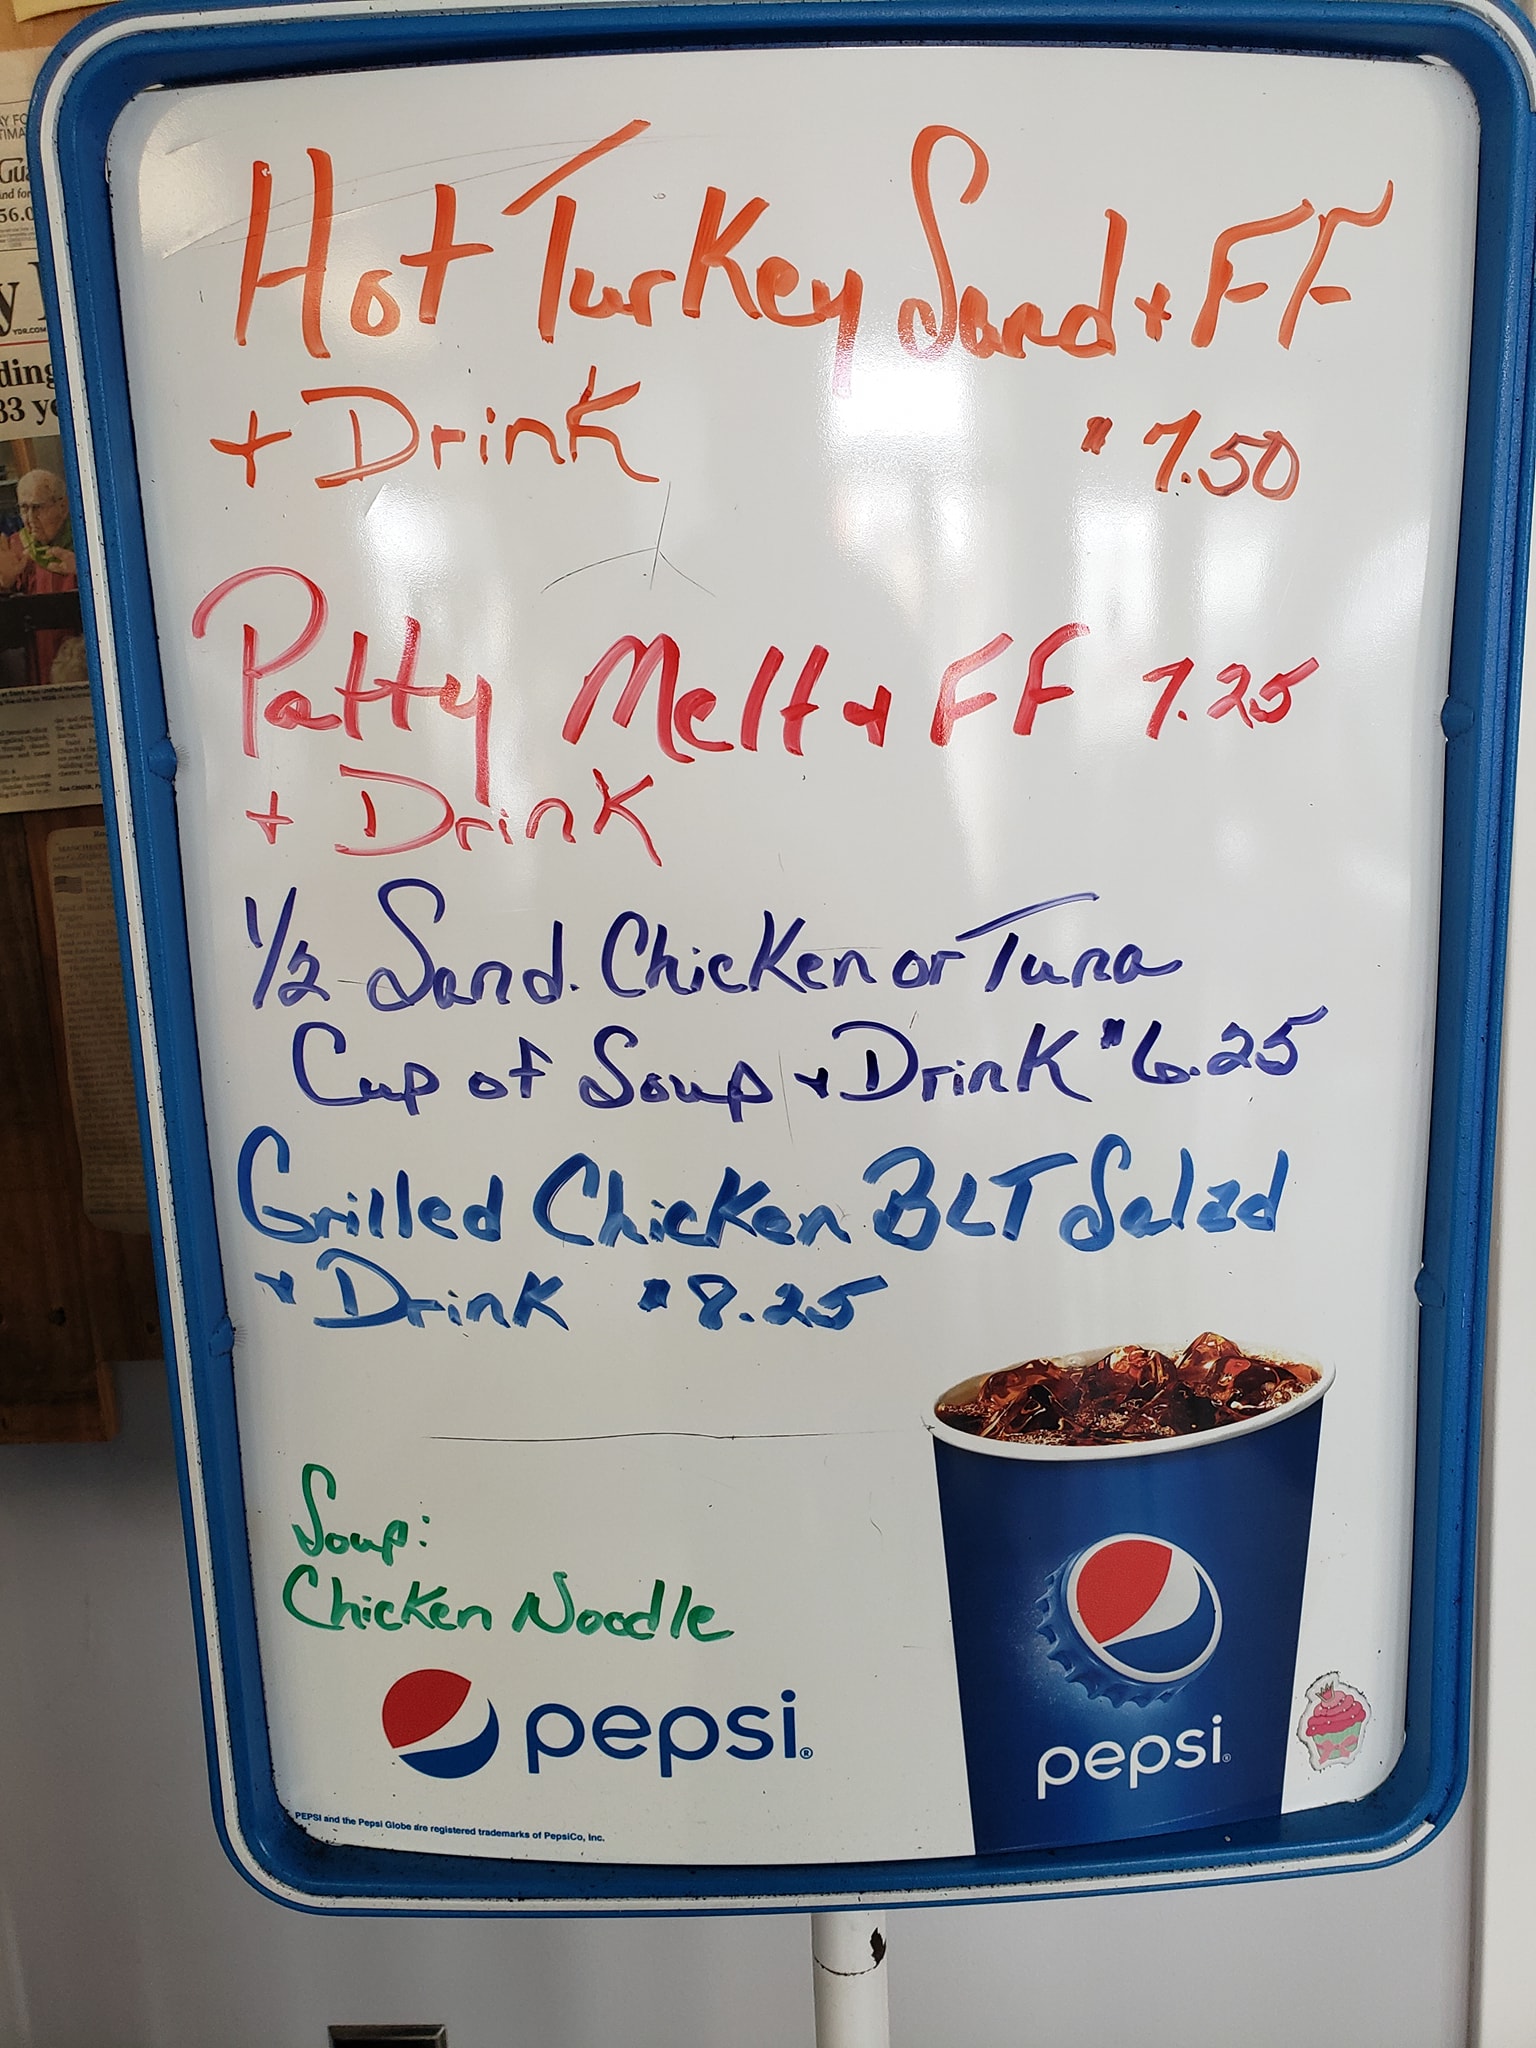 Hot Turkey Sand + FF
+ Drink $7.50
Patty Melt + FF 7.25
+ Drink
1/2 Sand. Chicken or Tuna
Cup of Soup + Drink $6.25
Grilled Chicken BLT Salad
+ Drink $8.25
Soup:
Chicken Noodle
pepsi®
pepsi®
PEPSI and the Pepsi Globe are registered trademarks of PepsiCo, Inc.
YDR.COM
ding